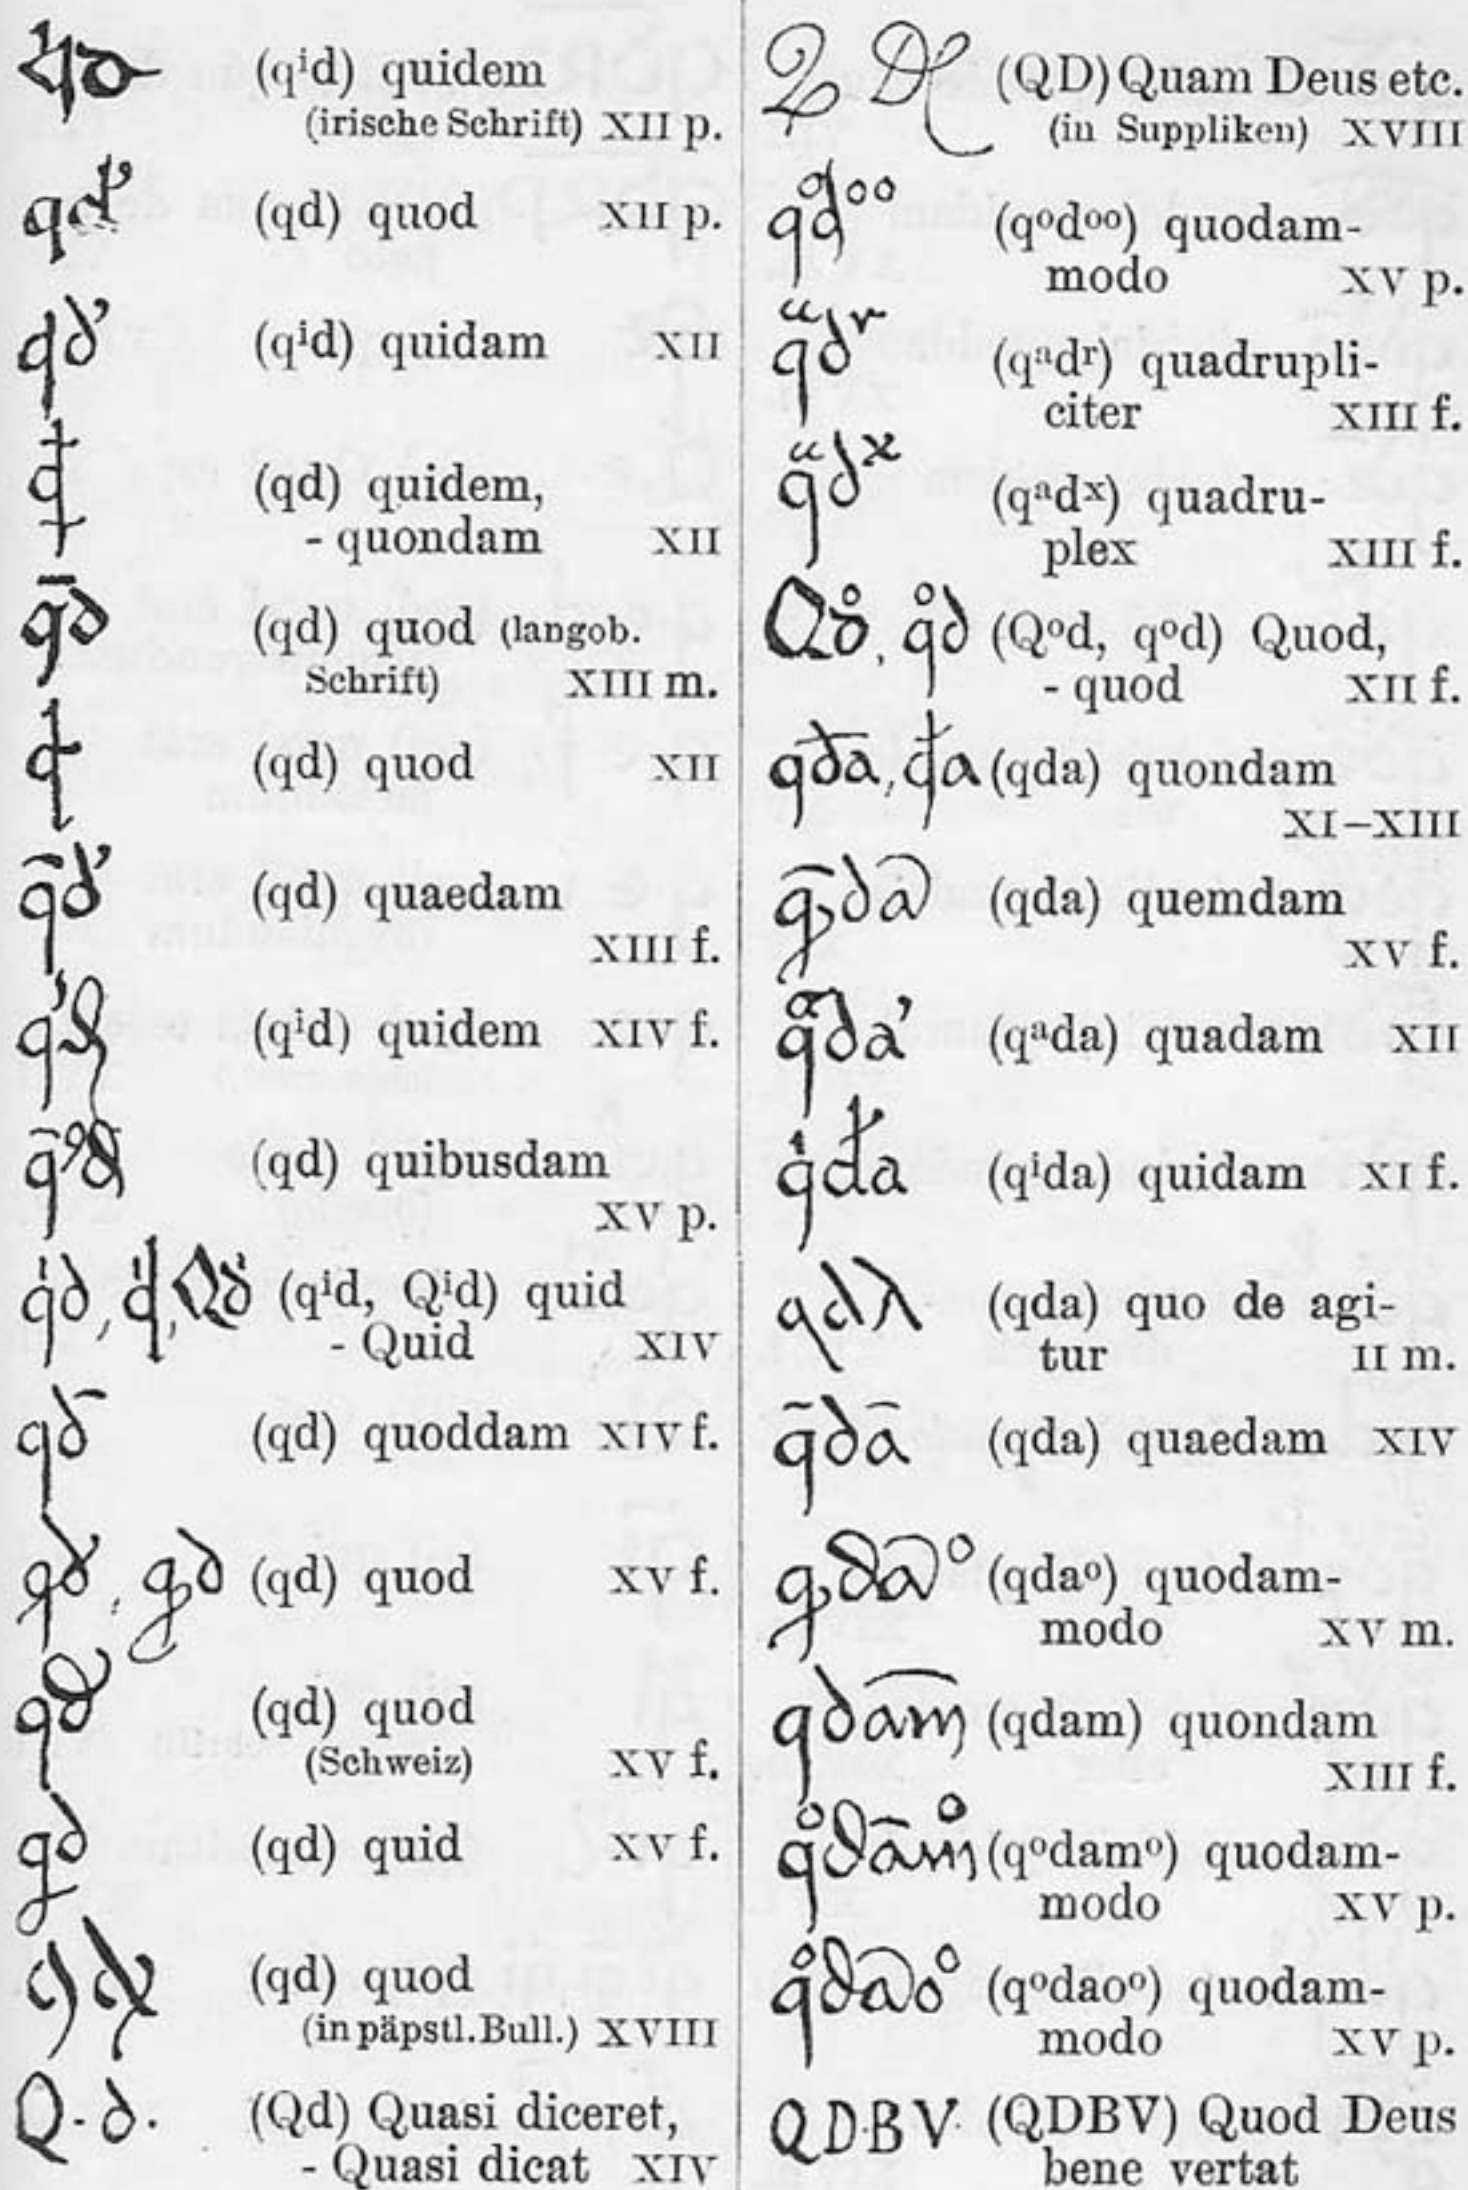 (qⁱd) quidem
(irische Schrift) XII p.
(qd) quod XII p.
(qⁱd) quidam XII
(qd) quidem,
- quondam XII
(qd) quod (langob.
Schrift) XIII m.
(qd) quod XII
(qd) quaedam
XIII f.
(qⁱd) quidem XIV f.
(qd) quibusdam
XV p.
(qⁱd, Qⁱd) quid
- Quid XIV
(qd) quoddam XIV f.
(qd) quod XV f.
(qd) quod
(Schweiz) XV f.
(qd) quid XV f.
(qd) quod
(in päpstl. Bull.) XVIII
Q. d. (Qd) Quasi diceret,
- Quasi dicat XIV
(QD) Quam Deus etc.
(in Suppliken) XVIII
(qᵒdᵒᵒ) quodam-
modo XV p.
(qᵃdʳ) quadrupli-
citer XIII f.
(qᵃdˣ) quadru-
plex XIII f.
(Qᵒd, qᵒd) Quod,
- quod XII f.
(qda) quondam
XI–XIII
(qda) quemdam
XV f.
(qᵃda) quadam XII
(qⁱda) quidam XI f.
(qda) quo de agi-
tur II m.
(qda) quaedam XIV
(qdaᵒ) quodam-
modo XV m.
(qdam) quondam
XIII f.
(qᵒdamᵒ) quodam-
modo XV p.
(qᵒdaoᵒ) quodam-
modo XV p.
QD·BV· (QDBV) Quod Deus
bene vertat